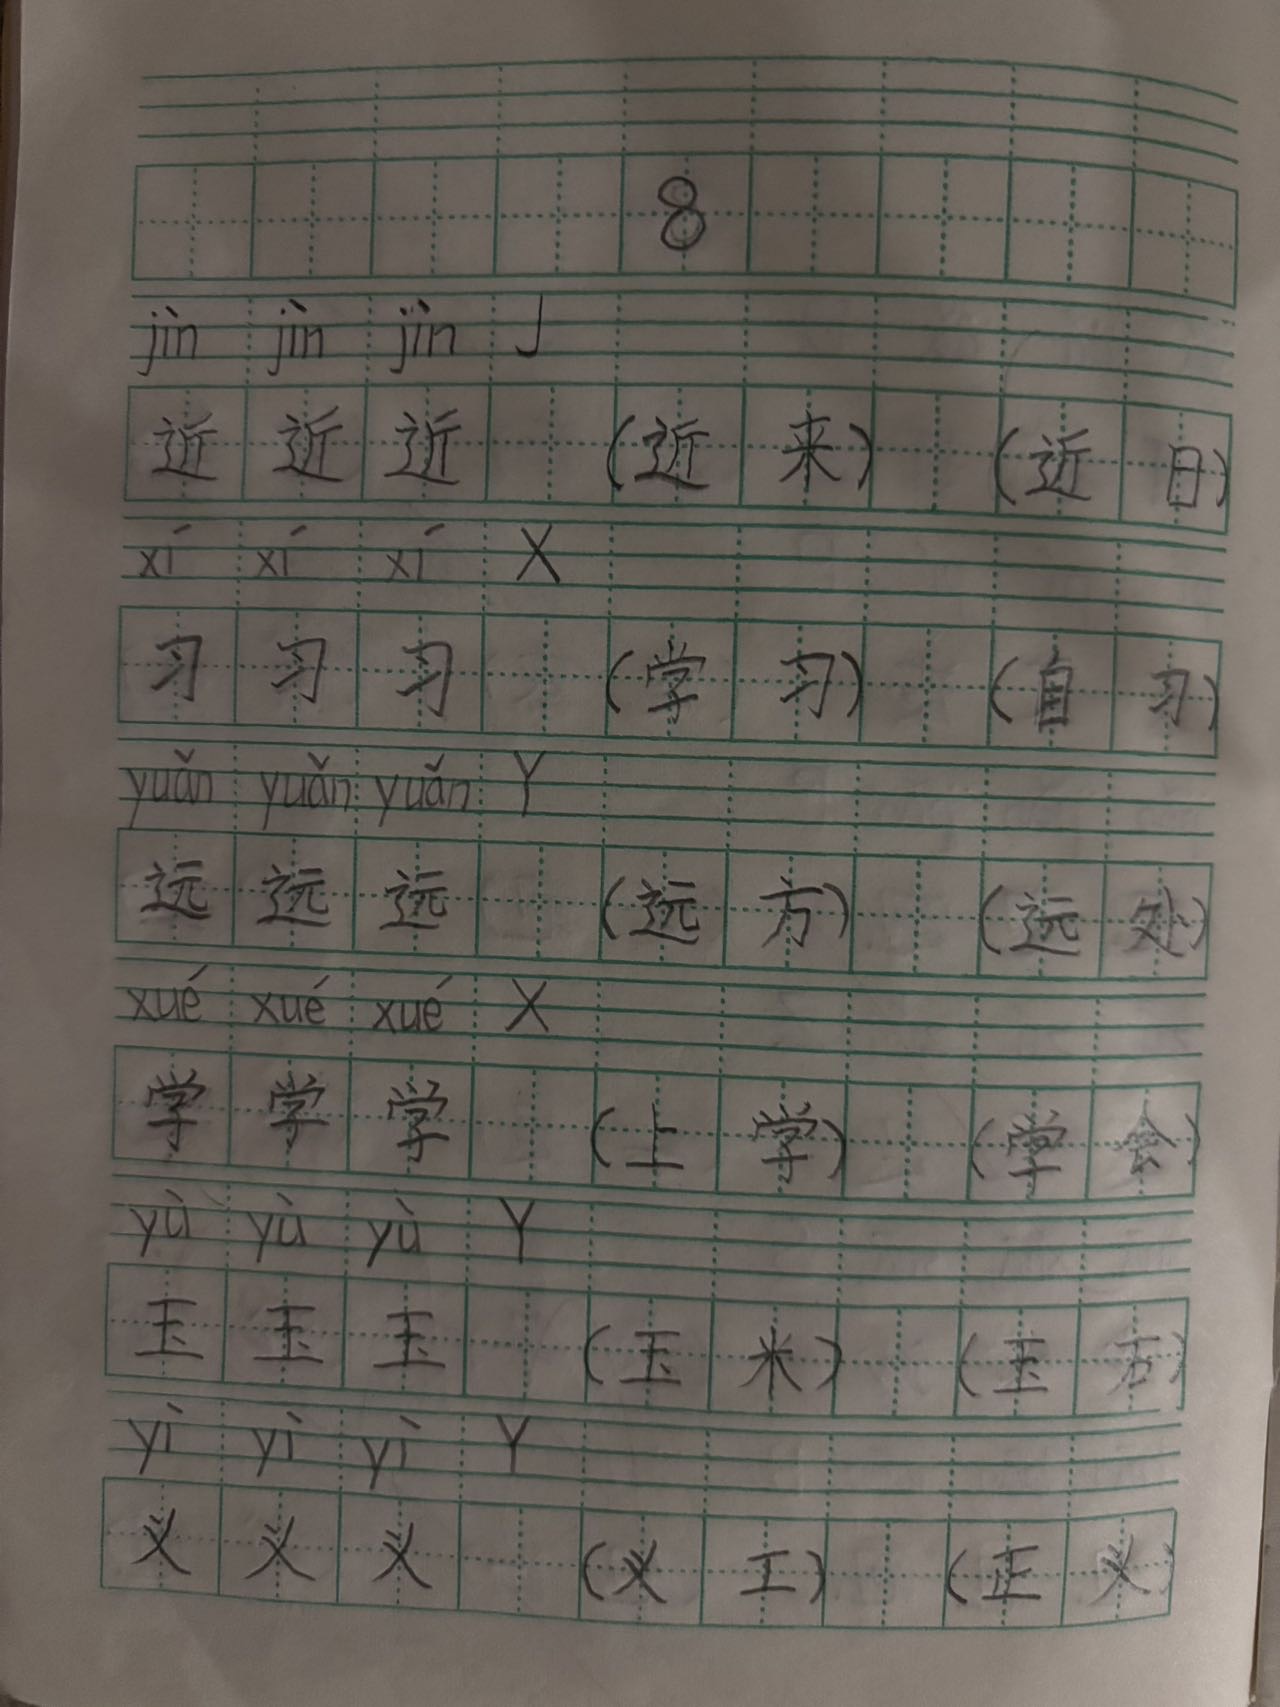 8
jìn jìn jìn J
近 近 近 (近 来) (近 日)
xí xí xí X
习 习 习 (学 习) (自 习)
yuǎn yuǎn yuǎn Y
远 远 远 (远 方) (远 处)
xué xué xué X
学 学 学 (上 学) (学 会)
yù yù yù Y
玉 玉 玉 (玉 米) (玉 石)
yì yì yì Y
义 义 义 (义 工) (正 义)